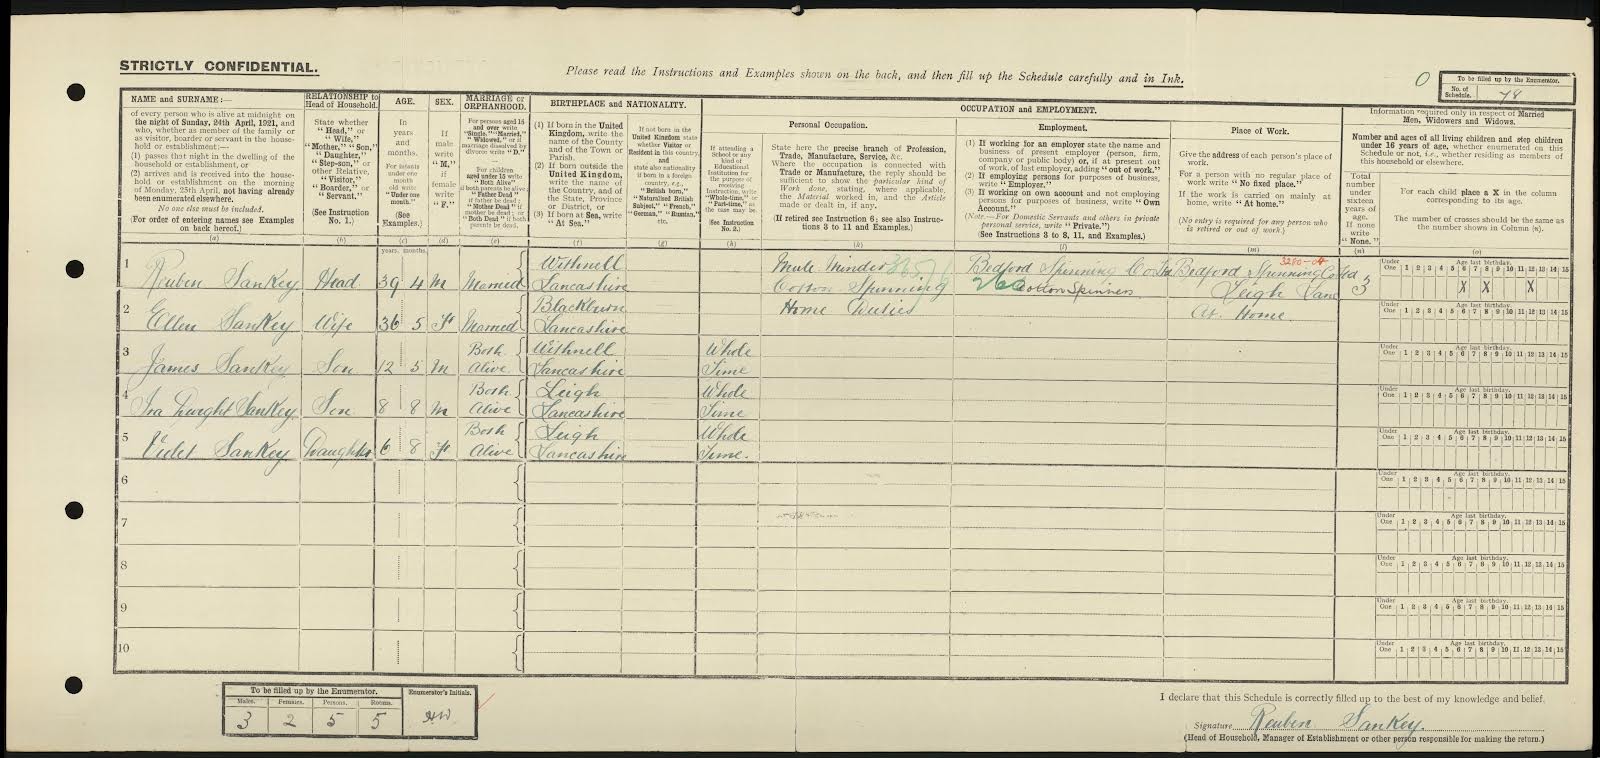 STRICTLY CONFIDENTIAL.
Please read the Instructions and Examples shown on the back, and then fill up the Schedule carefully and in Ink.
0
To be filled up by the Enumerator.
No. of Schedule. 78
NAME and SURNAME:—
of every person who is alive at midnight on
the night of Sunday, 24th April, 1921, and
who, whether as member of the family or
as visitor, boarder or servant in the house-
hold or establishment:—
(1) passes that night in the dwelling of the
household or establishment, or
(2) arrives and is received into the house-
hold or establishment on the morning
of Monday, 25th April, not having already
been enumerated elsewhere.
No one else must be included.
(For order of entering names see Examples
on back hereof.)
(a)
RELATIONSHIP to
Head of Household.
State whether
"Head," or
"Wife,"
"Mother," "Son,"
"Daughter,"
"Step-son," or
other Relative,
"Visitor,"
"Boarder," or
"Servant."
(See Instruction
No. 1.)
(b)
AGE.
In
years
and
months.
For infants
under one
month
old write
"Under one
month."
(See
Examples.)
(c)
years. months.
SEX.
If
male
write
"M."
if
female
write
"F."
(d)
MARRIAGE or
ORPHANHOOD.
For persons aged 15
and over write
"Single," "Married,"
"Widowed," or if
marriage dissolved by
divorce write "D."
For children
aged under 15 write
"Both Alive"
if both parents be alive;
"Father Dead"
if father be dead;
"Mother Dead" if
mother be dead; or
"Both Dead" if both
parents be dead.
(e)
BIRTHPLACE and NATIONALITY.
(1) If born in the United
Kingdom, write the
name of the County
and of the Town or
Parish.
(2) If born outside the
United Kingdom,
write the name of
the Country, and of
the State, Province
or District, or
(3) If born at Sea, write
"At Sea."
(f)
If not born in the
United Kingdom state
whether Visitor or
Resident in this country,
and
state also nationality
if born in a foreign
country, e.g.,
"British born,"
"Naturalised British
Subject," "French,"
"German," "Russian,"
etc.
(g)
OCCUPATION and EMPLOYMENT.
If attending a
School or any
kind of
Educational
Institution for
the purpose of
receiving
Instruction, write
"Whole-time," or
"Part-time," as
the case may be.
(See Instruction
No. 2.)
(h)
Personal Occupation.
State here the precise branch of Profession,
Trade, Manufacture, Service, &c.
Where the occupation is connected with
Trade or Manufacture, the reply should be
sufficient to show the particular kind of
Work done, stating, where applicable,
the Material worked in, and the Article
made or dealt in, if any.
(If retired see Instruction 6; see also Instruc-
tions 3 to 11 and Examples.)
(k)
Employment.
(1) If working for an employer state the name and
business of present employer (person, firm,
company or public body) or, if at present out
of work, of last employer, adding "out of work."
(2) If employing persons for purposes of business,
write "Employer."
(3) If working on own account and not employing
persons for purposes of business, write "Own
Account."
(Note.—For Domestic Servants and others in private
personal service, write "Private.")
(See Instructions 3 to 8, 11, and Examples.)
(l)
Place of Work.
Give the address of each person's place of
work.
For a person with no regular place of
work write "No fixed place."
If the work is carried on mainly at
home, write "At home."
(No entry is required for any person who
is retired or out of work.)
(m)
Information required only in respect of Married
Men, Widowers and Widows.
Number and ages of all living children and step children
under 16 years of age, whether enumerated on this
Schedule or not, i.e., whether residing as members of
this household or elsewhere.
Total
number
under
sixteen
years of
age.
If none
write
"None."
(n)
For each child place a X in the column
corresponding to its age.
The number of crosses should be the same as
the number shown in Column (n).
(o)
Under One Age last birthday.
1 2 3 4 5 6 7 8 9 10 11 12 13 14 15
1 Reuben Sankey Head 39 4 M Married Withnell Lancashire
Mule Minder Cotton Spinning
Bedford Spinning Co. Ltd Cotton Spinners 260
3280-04
Bedford Spinning Co Ltd Leigh Lane
3 X X X
2 Ellen Sankey Wife 36 5 F Married Blackburn Lancashire Home Duties At Home.
3 James Sankey Son 12 5 M Both Alive. Withnell Lancashire Whole Time
4 Ira Dwight Sankey Son 8 8 M Both Alive Leigh Lancashire Whole Time
5 Violet Sankey Daughter 6 8 F Both Alive Leigh Lancashire Whole Time.
6
7
8
9
10
To be filled up by the Enumerator.
Males. Females. Persons. Rooms.
3 2 5 5
Enumerator's Initials.
HW
I declare that this Schedule is correctly filled up to the best of my knowledge and belief.
Signature Reuben Sankey.
(Head of Household, Manager of Establishment or other person responsible for making the return.)